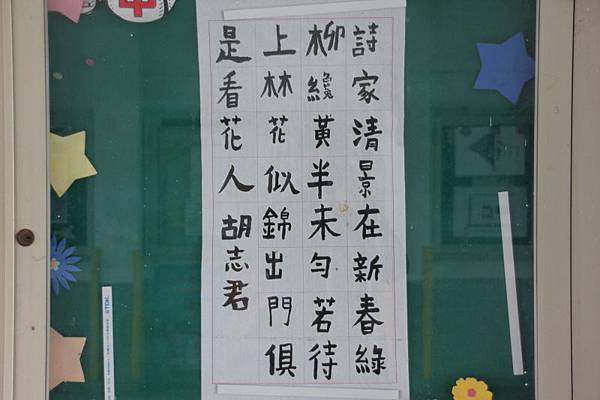 詩家清景在新春綠
柳纔黃半未勻若待
上林花似錦出門俱
是看花人胡志君